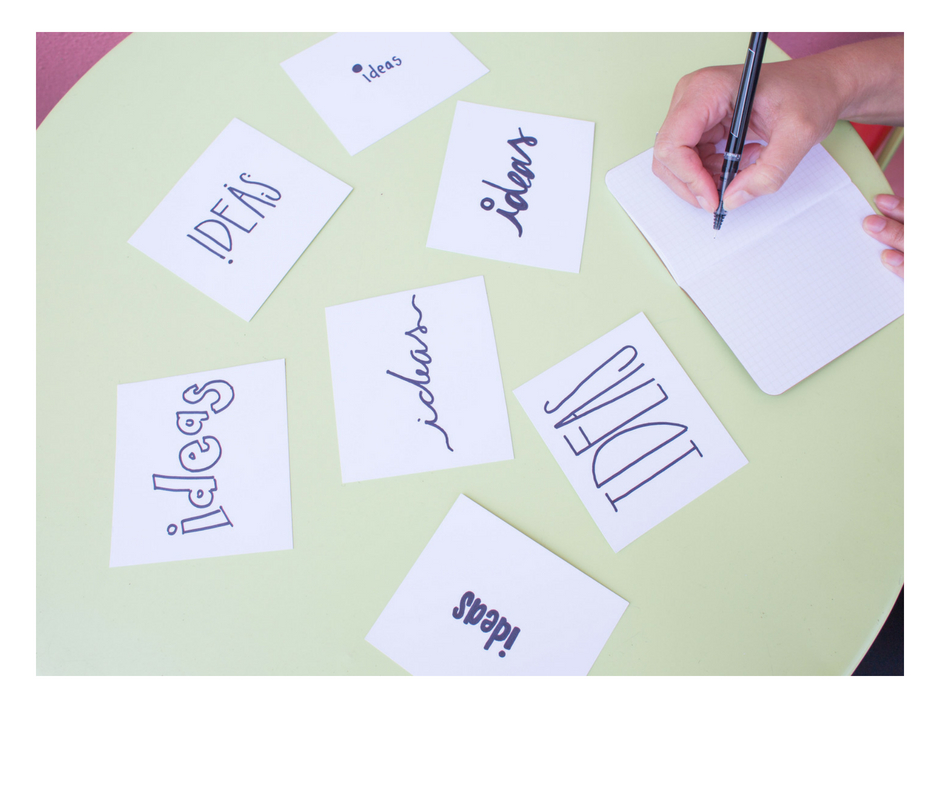 ideas
ideas
IDEAS
ideas
IDEAS
ideas
ideas